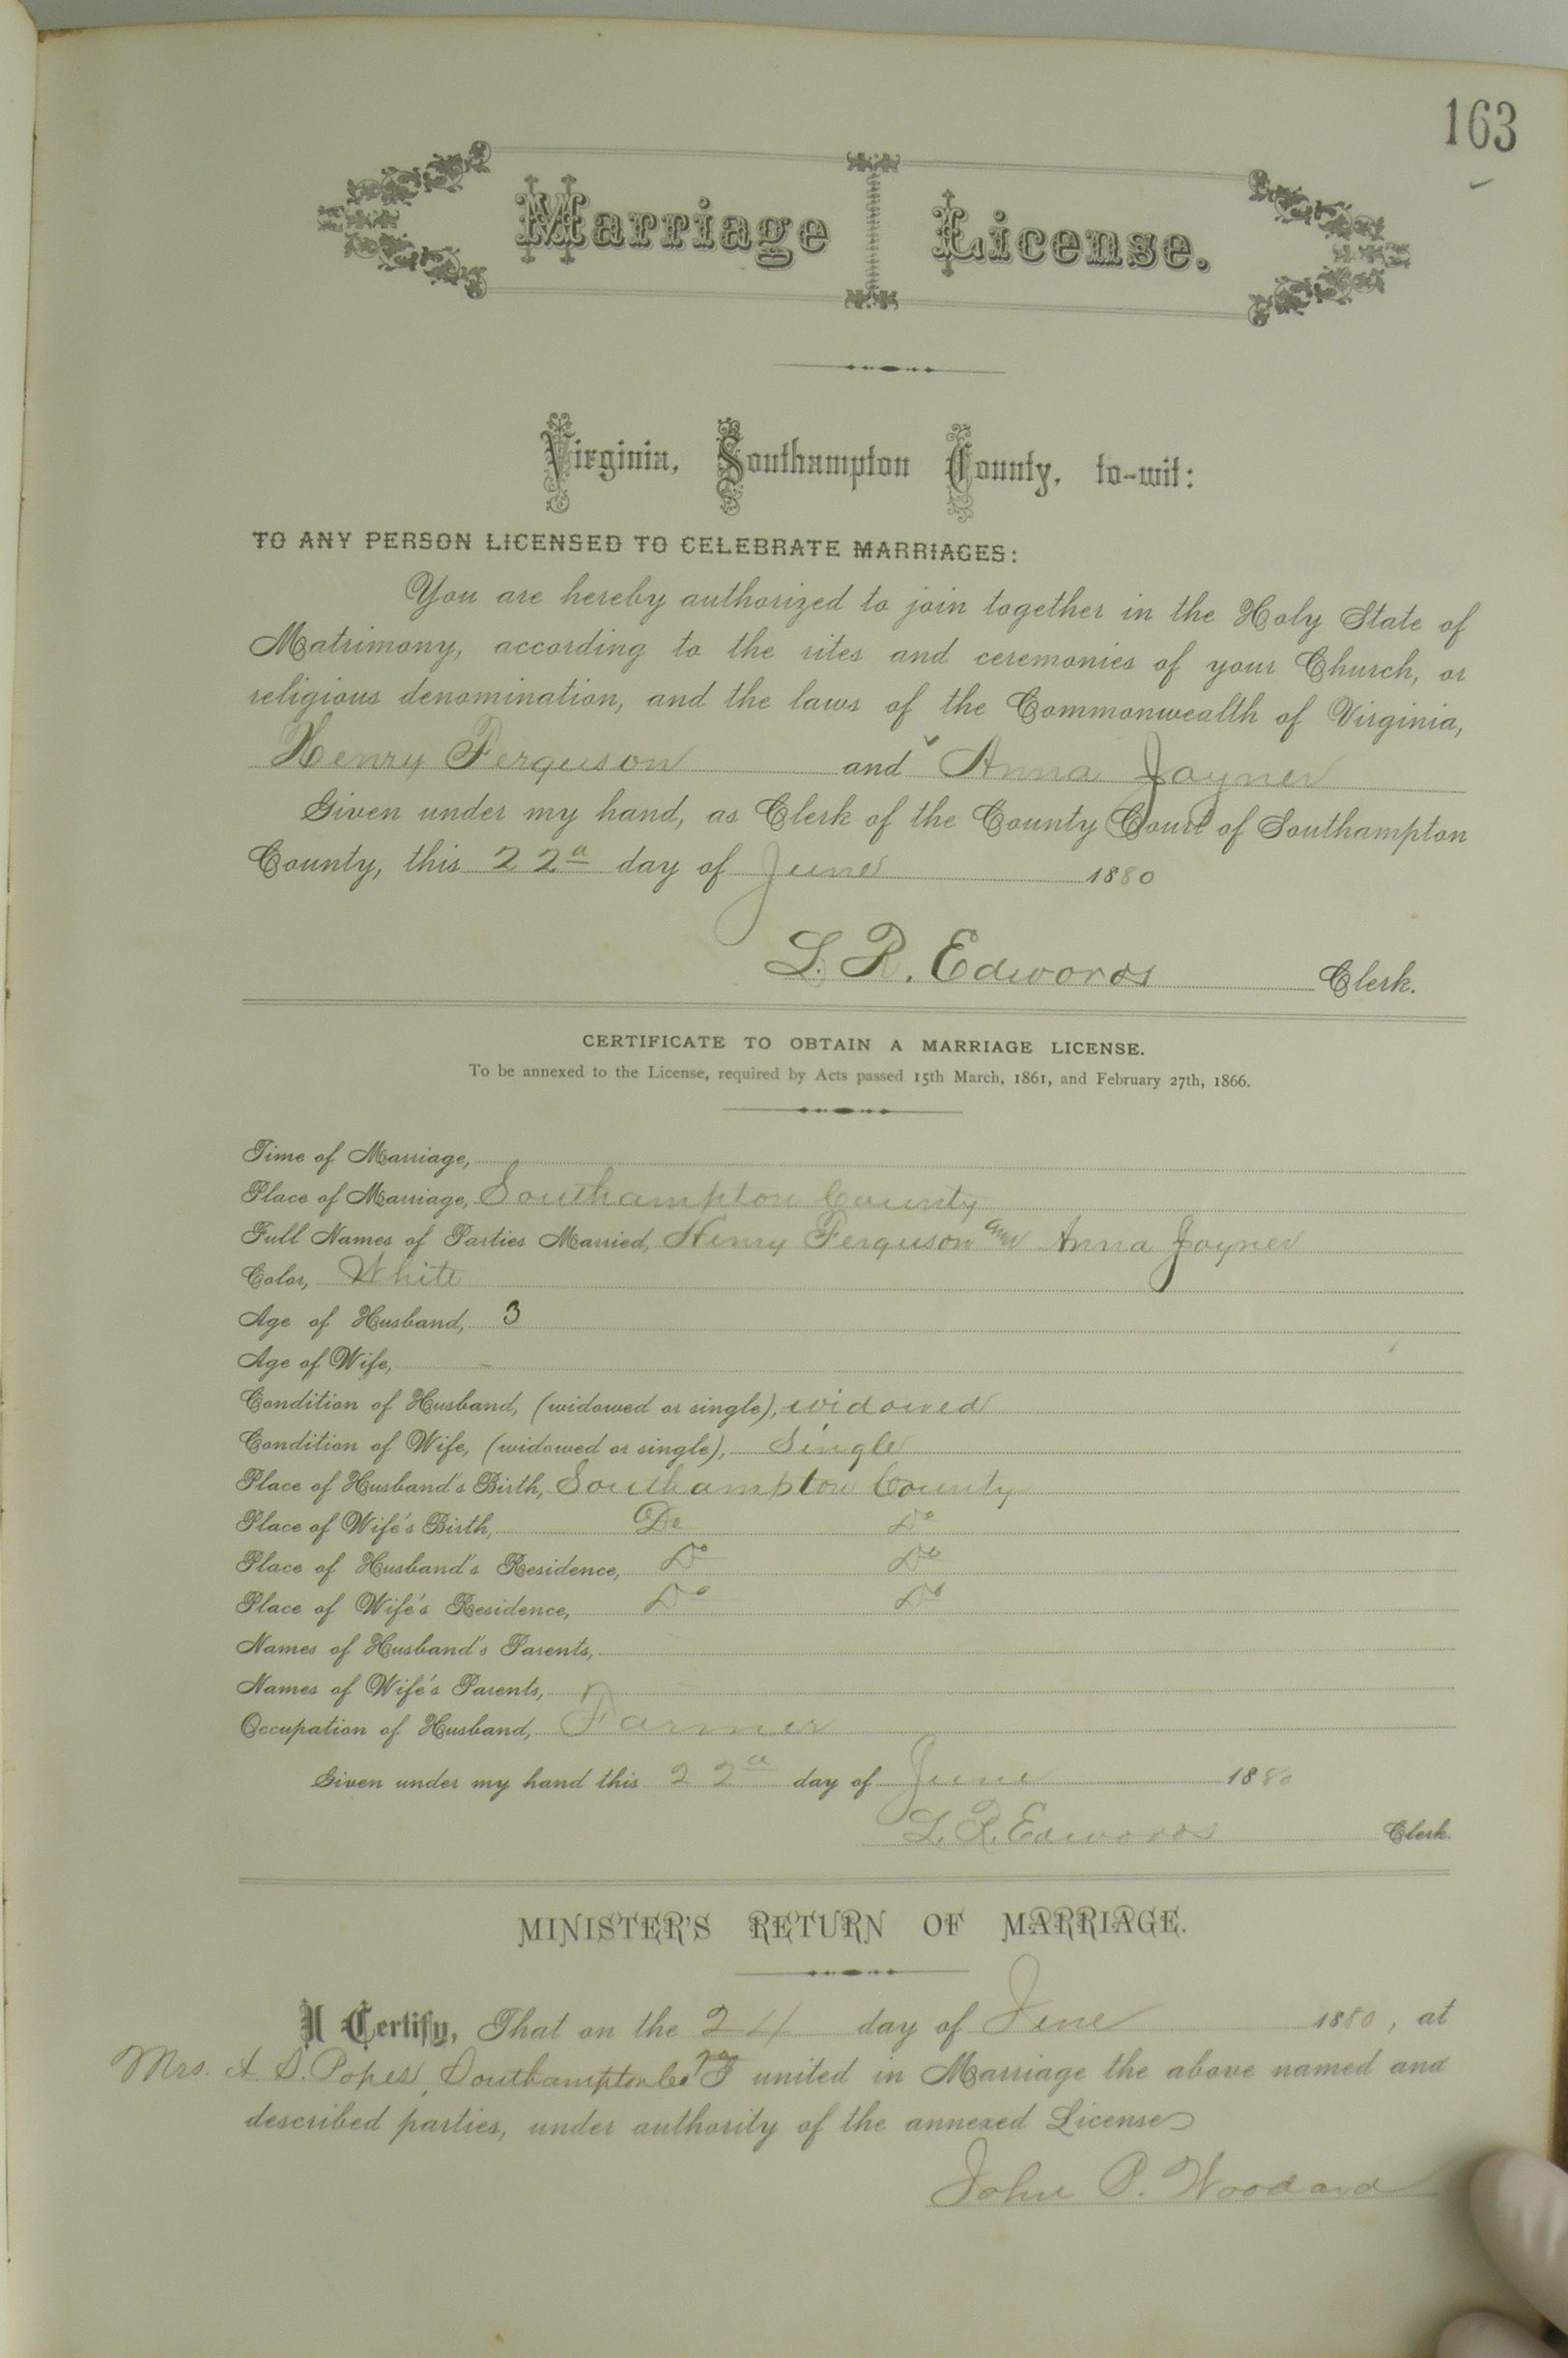 163
Marriage License.
Virginia, Southampton County, to-wit:
TO ANY PERSON LICENSED TO CELEBRATE MARRIAGES:
You are hereby authorized to join together in the Holy State of
Matrimony, according to the rites and ceremonies of your Church, or
religious denomination, and the laws of the Commonwealth of Virginia,
Henry Ferguson and Anna Joyner
Given under my hand, as Clerk of the County Court of Southampton
County, this 22d day of June 1880
L. R. Edwards Clerk.
CERTIFICATE TO OBTAIN A MARRIAGE LICENSE.
To be annexed to the License, required by Acts passed 15th March, 1861, and February 27th, 1866.
Time of Marriage,
Place of Marriage, Southampton County
Full Names of Parties Married, Henry Ferguson and Anna Joyner
Color, White
Age of Husband, 3
Age of Wife,
Condition of Husband, (widowed or single), widowed
Condition of Wife, (widowed or single), Single
Place of Husband's Birth, Southampton County
Place of Wife's Birth, Do Do
Place of Husband's Residence, Do Do
Place of Wife's Residence, Do Do
Names of Husband's Parents,
Names of Wife's Parents,
Occupation of Husband, Farmer
Given under my hand this 22d day of June 1880
L. R. Edwards Clerk.
MINISTER'S RETURN OF MARRIAGE.
I Certify, That on the 24 day of June 1880, at
Mrs. A. S. Popes, Southampton Co Va I united in Marriage the above named and
described parties, under authority of the annexed License
John P. Woodard